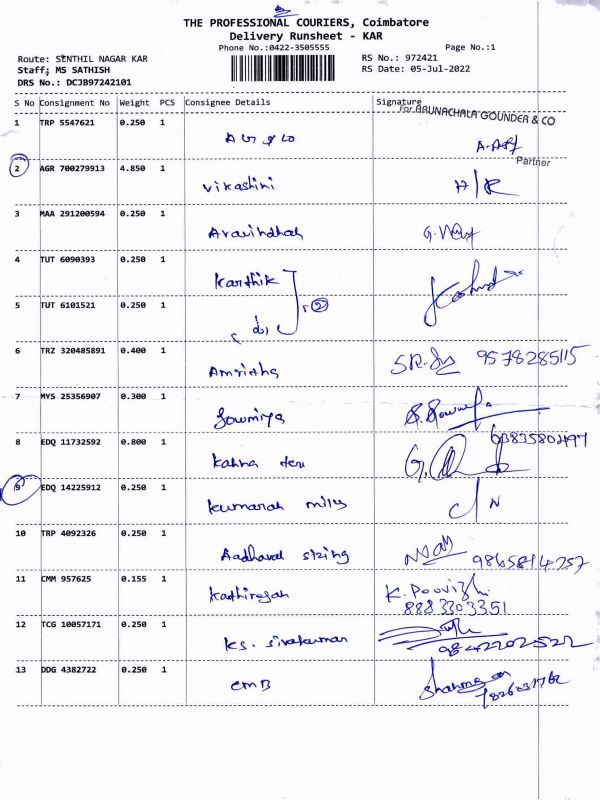 THE PROFESSIONAL COURIERS, Coimbatore
Delivery Runsheet - KAR
Phone No.:0422-3505555
Page No.:1
Route: SENTHIL NAGAR KAR
RS No.: 972421
Staff: MS SATHISH
RS Date: 05-Jul-2022
DRS No.: DCJB97242101
S No Consignment No Weight PCS Consignee Details Signature
For ARUNACHALA GOUNDER & CO
1 TRP 5547621 0.250 1
Partner
2 AGR 700279913 4.850 1 Vikashini
3 MAA 291200594 0.250 1 Aravindhan
4 TUT 6090393 0.250 1 Karthik
5 TUT 6101521 0.250 1 (do) 2
6 TRZ 320485891 0.400 1 Amritha 9578285115
7 MYS 25356907 0.300 1 Sowmiya
8 EDQ 11732592 0.800 1 Kanna
9 EDQ 14225912 0.250 1 Kumaran mills
10 TRP 4092326 0.250 1 Aadhavan sizing
11 CMM 957625 0.155 1 Kathiresan K. Poovizhi
8883303351
12 TCG 10057171 0.250 1 KS. Sivakumar
9842202522
13 DDG 4382722 0.250 1 EMB